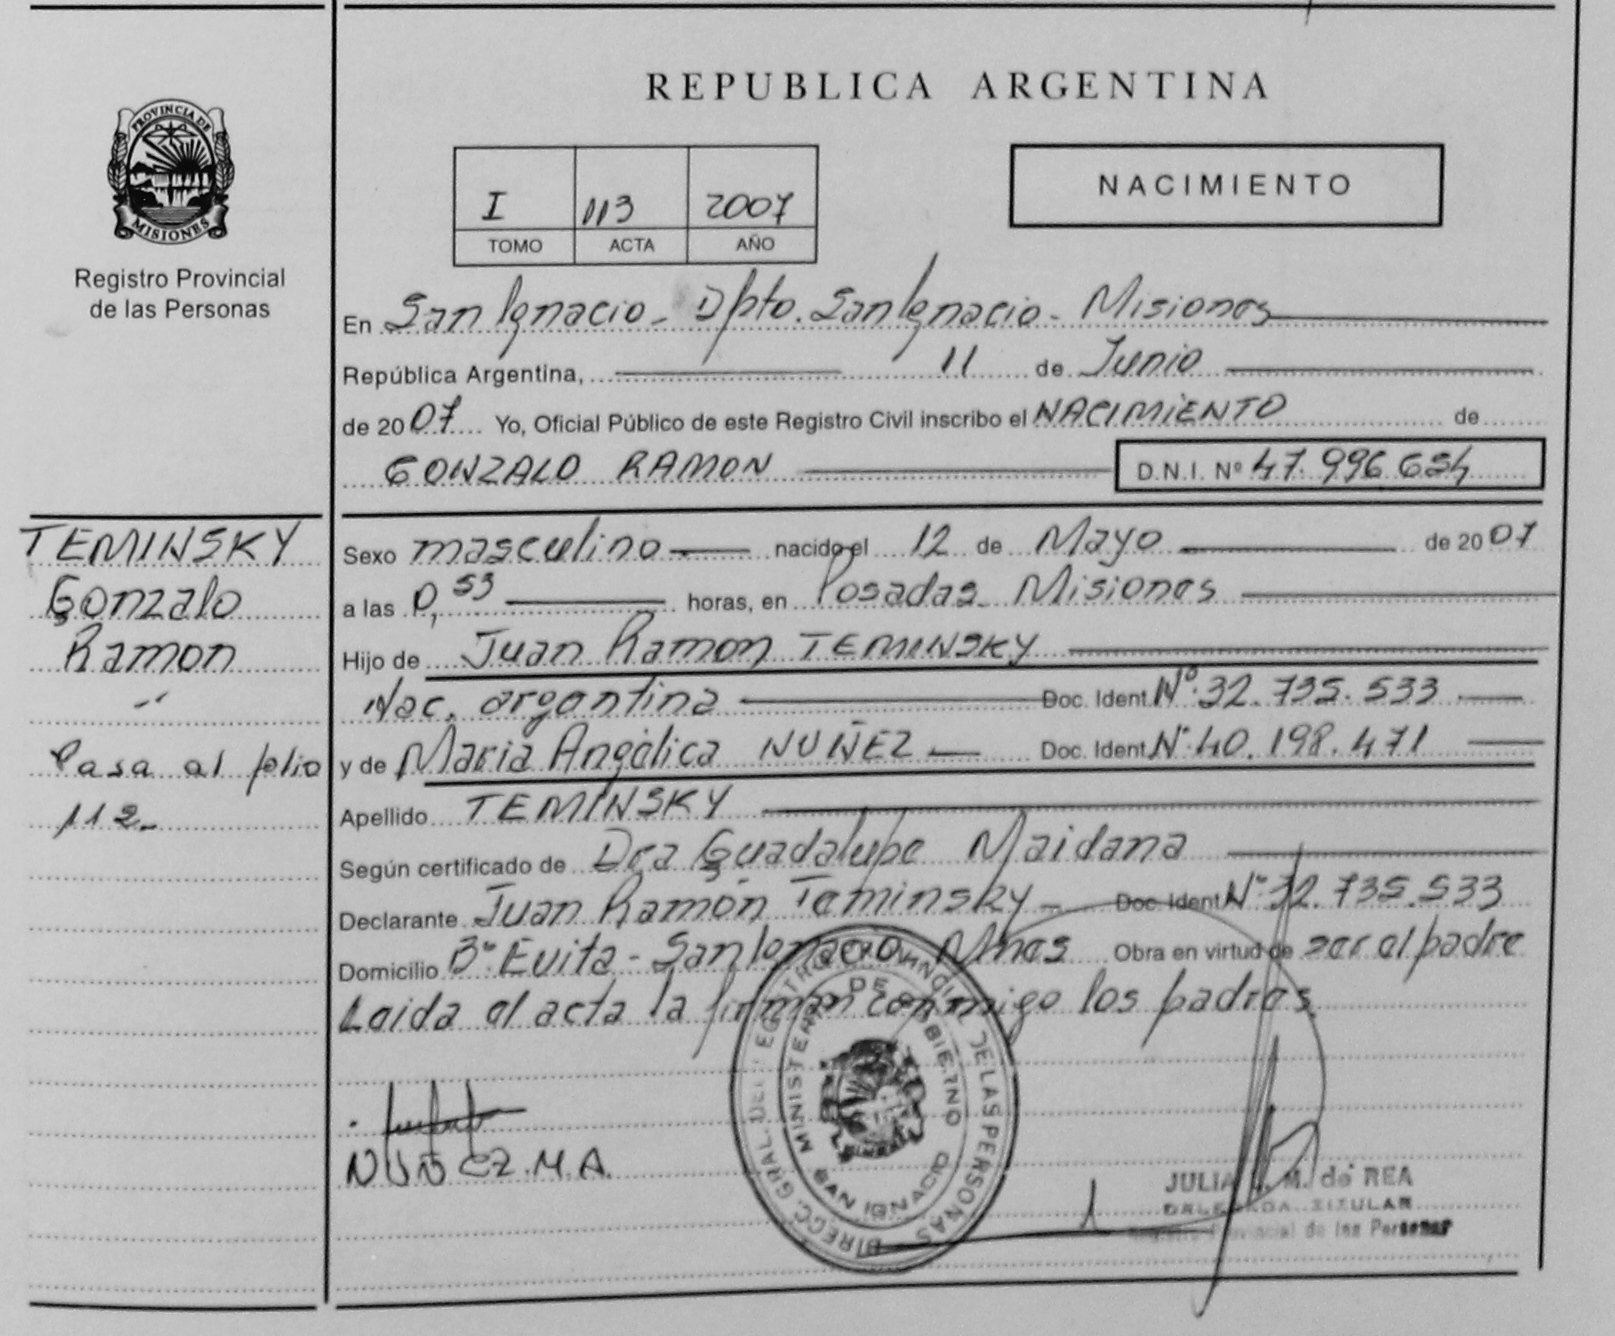 REPUBLICA ARGENTINA
PROVINCIA DE
MISIONES
Registro Provincial
de las Personas
I 113 2007
TOMO ACTA AÑO
NACIMIENTO
En San Ignacio - Dpto. San Ignacio - Misiones
República Argentina, 11 de Junio
de 2007 Yo, Oficial Público de este Registro Civil inscribo el NACIMIENTO de
GONZALO RAMON D.N.I. Nº 47.996.654
TEMINSKY
Gonzalo
Ramon
Pasa al folio
112-
Sexo masculino nacido el 12 de Mayo de 2007
a las 0,53 horas, en Posadas Misiones
Hijo de Juan Ramon TEMINSKY
Nac. argentina Doc. Ident. Nº 32.735.533
y de Maria Angélica NUÑEZ Doc. Ident. Nº 40.198.471
Apellido TEMINSKY
Según certificado de Dra Guadalupe Maidana
Declarante Juan Ramón Teminsky Doc. Ident. Nº 32.735.533
Domicilio Bº Evita - San Ignacio Mnes Obra en virtud de ser el padre
Leida el acta la firman conmigo los padres
NUÑEZ. M. A.
DIRECC. GRAL. DEL REGISTRO PROVINCIAL DE LAS PERSONAS
MINISTERIO DE GOBIERNO
SAN IGNACIO
JULIA M. de REA
DELEGADA TITULAR
Registro Provincial de las Personas